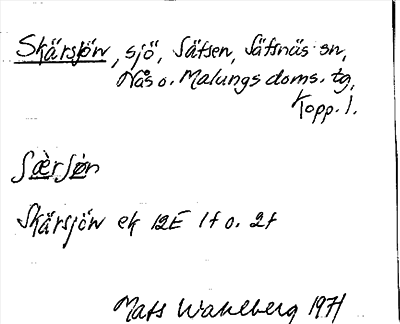 Skärsjön, sjö, Säfsen, Säfsnäs sn,
Nås o. Malungs doms. tg,
Kopp. l.
Sæ̀rSø̀n
Skärsjön ek 12E 1f o. 2f
Mats Wahlberg 1971